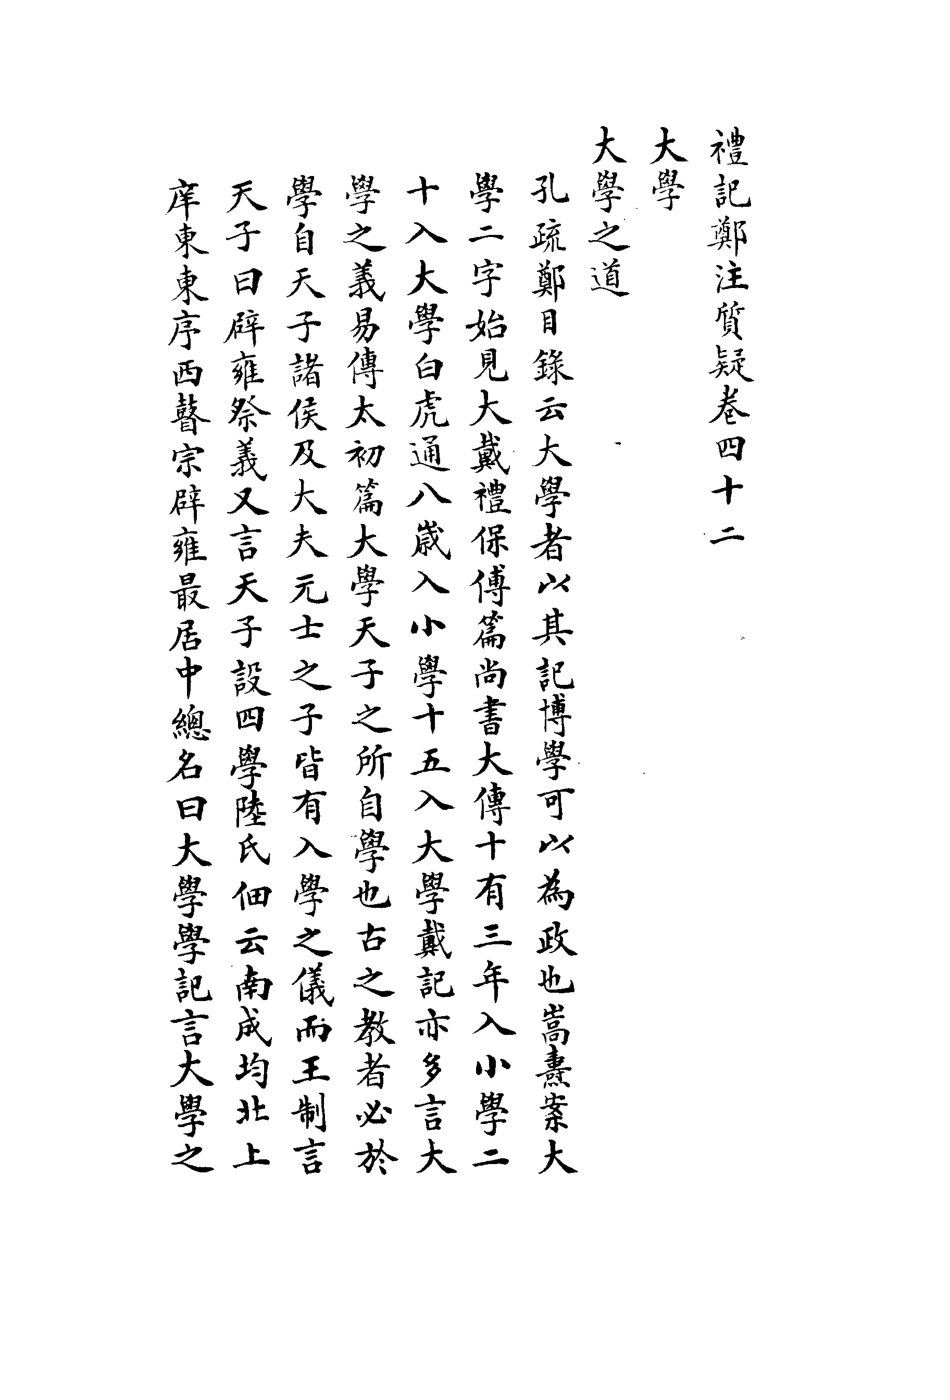 禮記鄭注質疑卷四十二
大學
大學之道
孔疏鄭目錄云大學者以其記博學可以為政也嵩燾案大
學二字始見大戴禮保傅篇尚書大傳十有三年入小學二
十入大學白虎通八歲入小學十五入大學戴記亦多言大
學之義易傳太初篇大學天子之所自學也古之教者必於
學自天子諸侯及大夫元士之子皆有入學之儀而王制言
天子曰辟雍祭義又言天子設四學陸氏佃云南成均北上
庠東東序西瞽宗辟雍最居中總名曰大學學記言大學之